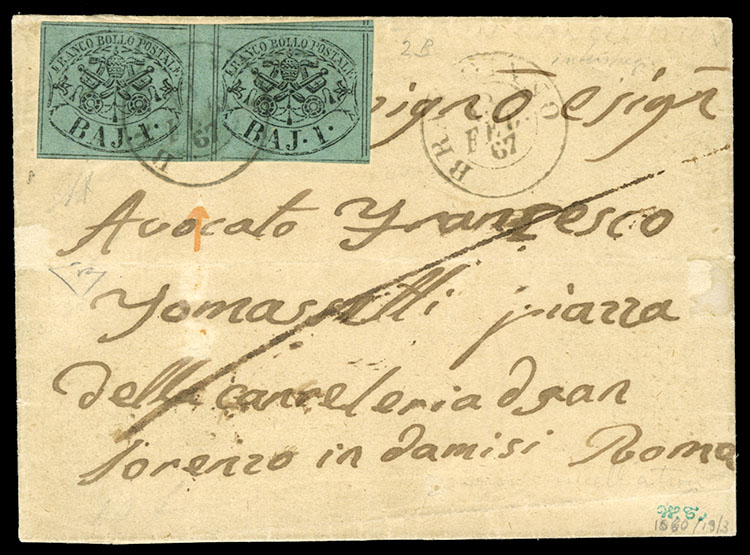 FRANCO BOLLO POSTALE FRANCO BOLLO POSTALE
BAJ. 1. BAJ. 1.
67
2B
FEB.
67
signō esigr̄
Avvocato Francesco
Tomassetti piazza
della cancelleria d san
lorenzo in damisi Roma
1860/19/3